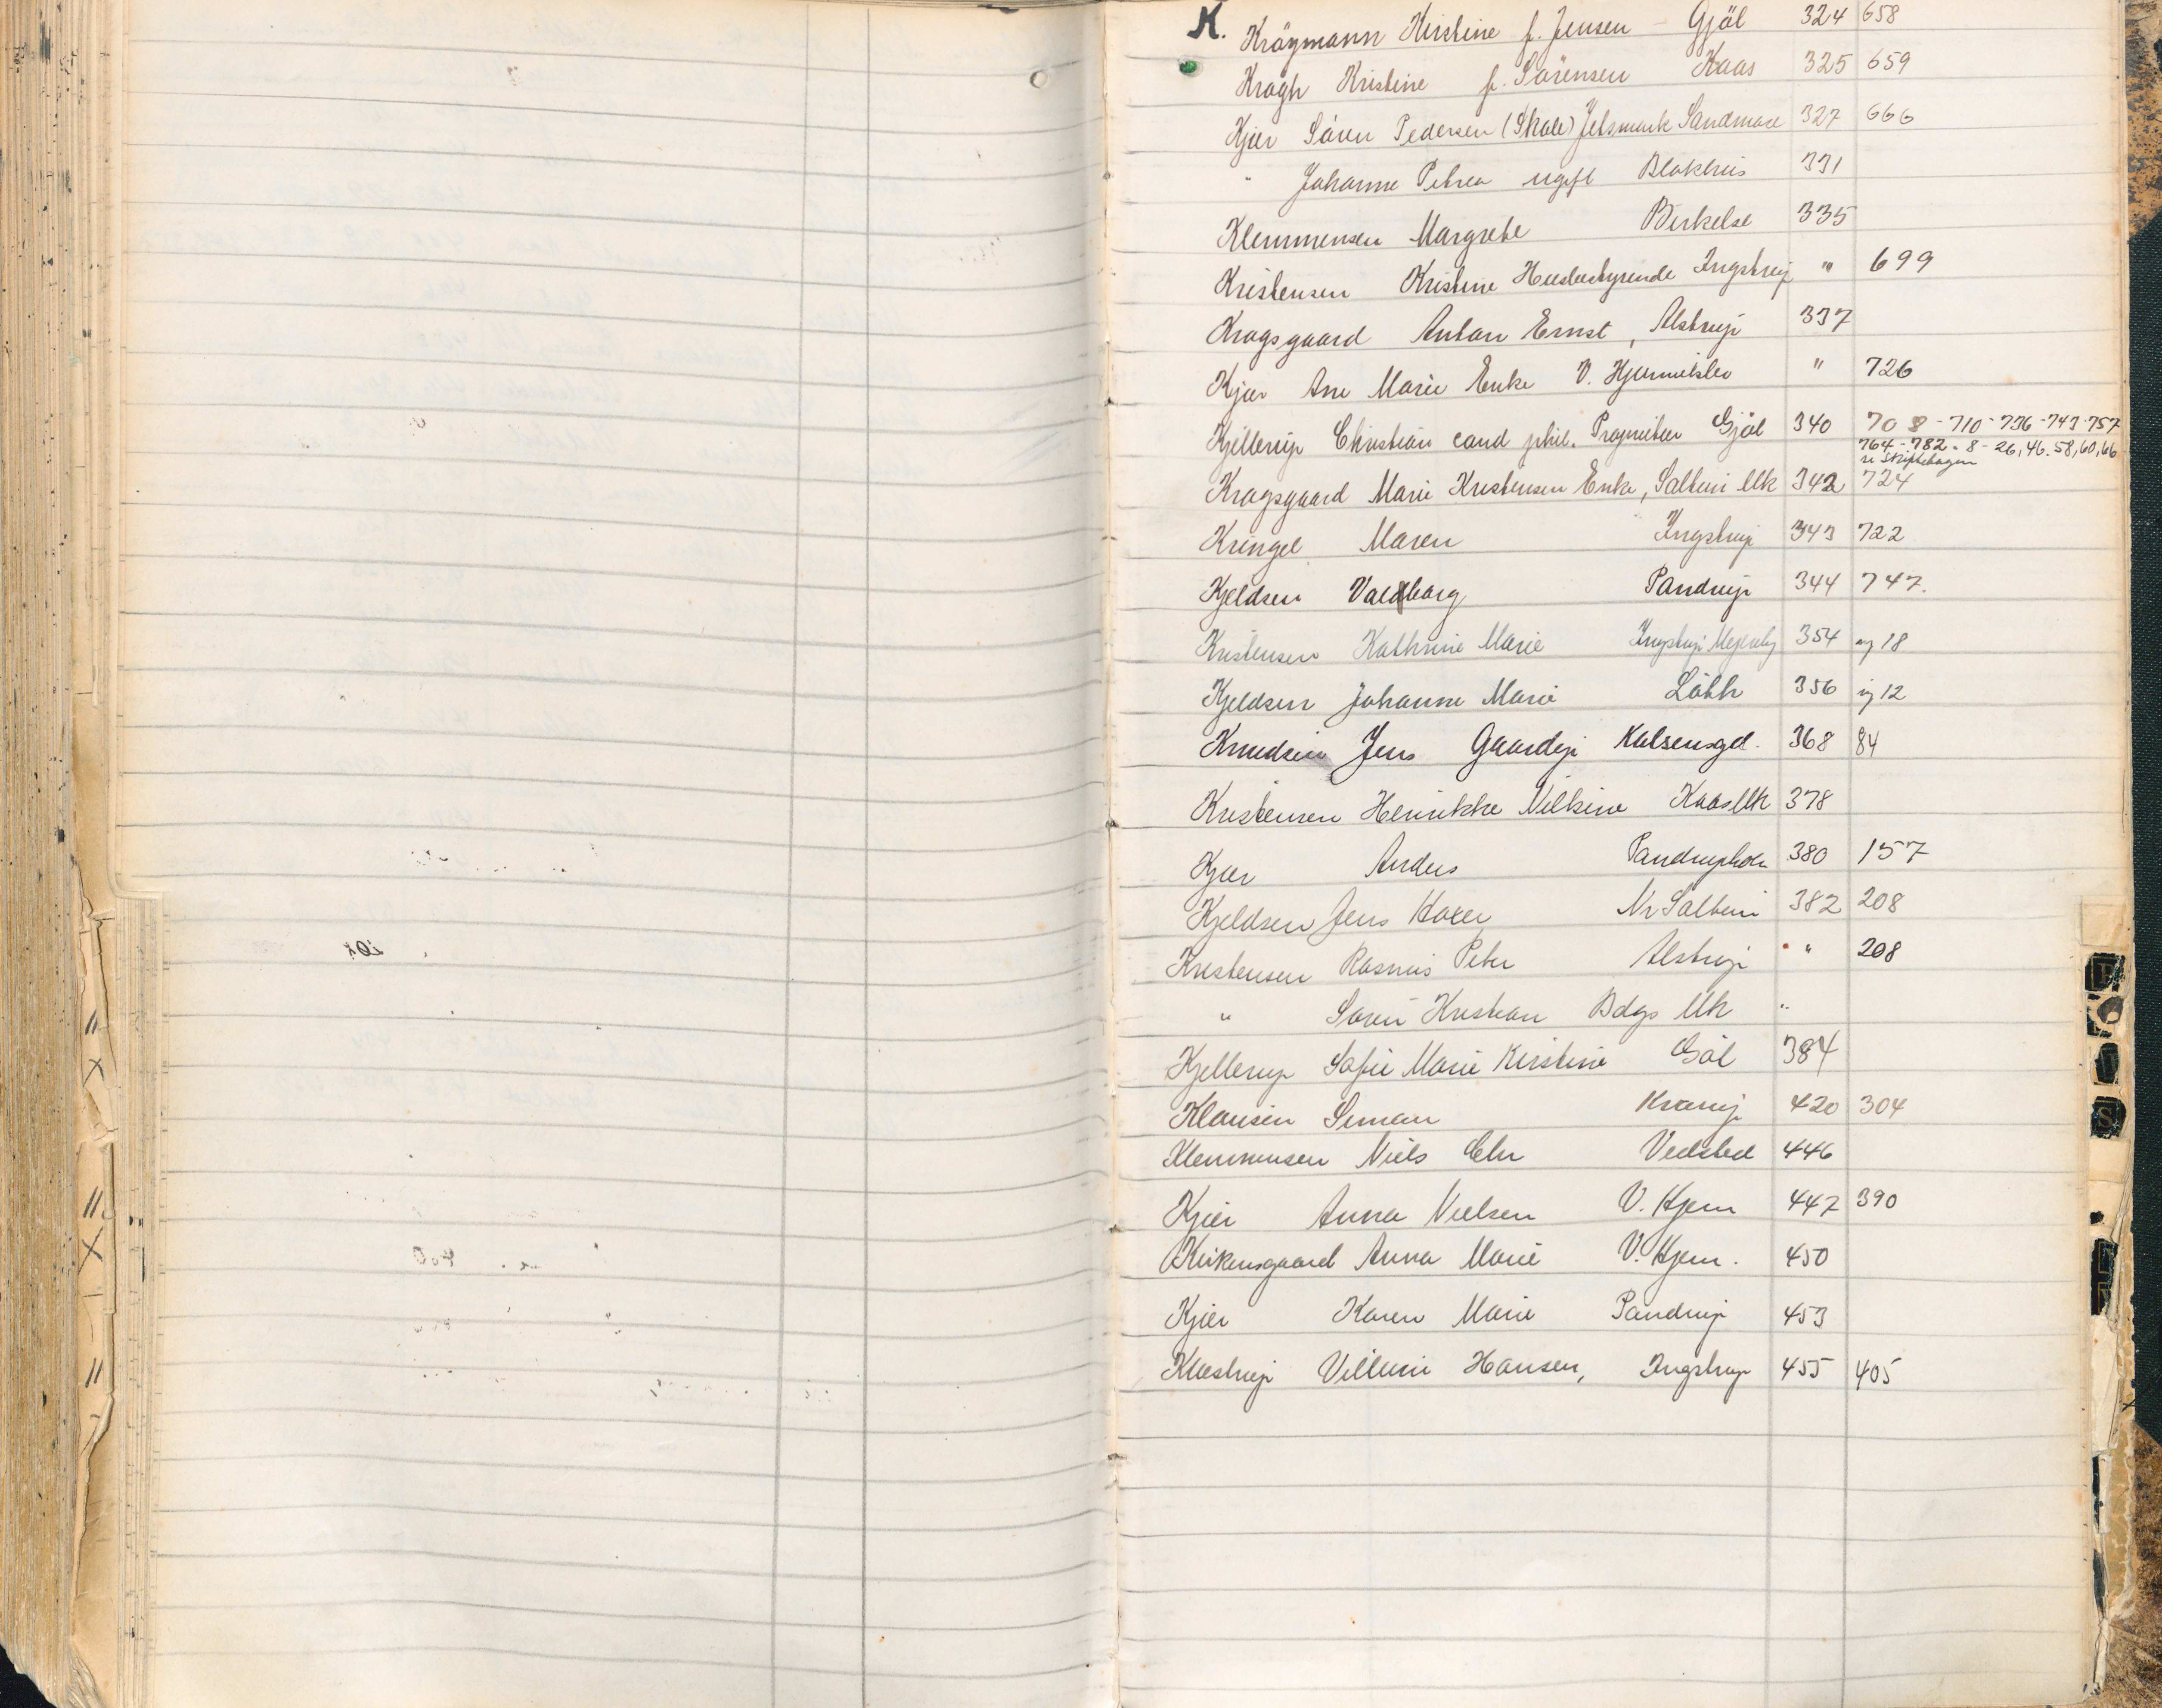 K. Kröymann Kirstine f. Jensen - Gjöl 324 658
Kragh Kristine f. Sörensen Kaas 325 659
Kjær Sören Pedersen (Skole) Jetsmark Sandmose 327 666
" Johanne Petrea ugift Blokhus 331
Klemmensen Margrethe Birkelse 335
Kristensen Kristine Husbestyrende Ingstrup " 699
Kragsgaard Anton Ernst, Alstrup 337
Kjær Ane Marie Enke V. Hjermitslev " 726
Kjellerup Christian cand phil. Proprietær Gjöl 340 708-710-736-743-757
764-782-8-26,46.58,60,66
se Skiftebogen
Kragsgaard Marie Kristensen Enke, Saltum Mk 342 724
Kringel Maren Ingstrup 343 722
Kjeldsen Valborg Pandrup 344 747.
Kristensen Kathrine Marie Ingstrup Mejeriby 354 ny 18
Kjeldsen Johanne Marie Löth 356 ny 12
Knudsen Jens Gaardejr Kalsensgd. 368 84
Kristensen Henrikke Vilksine Kaas Mk 378
Kjær Anders Pandruphom 380 157
Kjeldsen Jens Koller Nr Saltum 382 208
Kristensen Rasmus Peter Alstrup " 208
" Sören Kristian Bdgs Mk "
Kjellerup Sofie Marie Kirstine Göl 384
Klausen Simon Kvarup 420 304
Klemmensen Niels Chr Vedsted 446
Kjær Anna Nielsen V. Hjerm 447 390
Kirkensgaard Anna Marie V. Hjerm. 450
Kjær Karen Marie Pandrup 453
Klæstrup Villum Hansen, Ingstrup 455 405